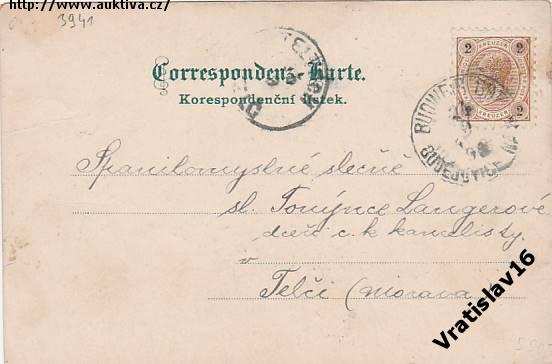 http://www.auktiva.cz/
3941
2 KREUZER 2
2 2
Correspondenz-Karte.
Korespondenční lístek.
TELTSCH
BUDWEIS
BUDĚJOVICE
Spanilomyslné slečně
sl. Tonynce Langerové
dceři c. k. kancelisty
v
Telči (Morava)
Vratislav16